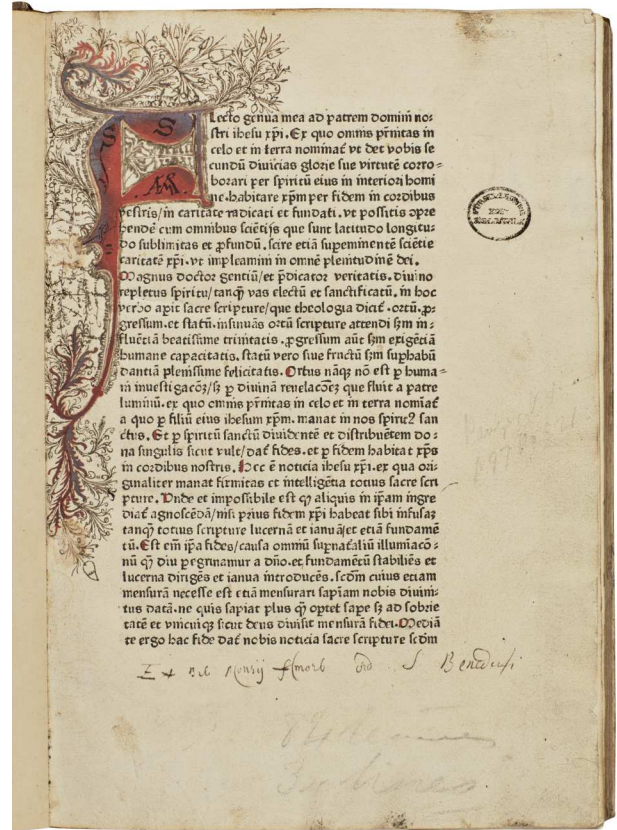 Flecto genua mea ad patrem domini no=
stri ihesu xp̄i. Ex quo omnis pr̄nitas in
celo et in terra nominat̄ vt det vobis se
cundū diuicias glorie sue virtutē corro=
borari per spiritū eius in interiori homi
ne. habitare xp̄m per fidem in cordibus
vestris/in caritate radicati et fundati. vt possitis cp̄re
hendē cum omnibus sc̄is que sunt latitudo longitu=
do sublimitas et ꝓfundū. scire etiā supeminentē sciētie
caritatē xp̄i. vt impleamini in omnē plenitudinē dei.
Magnus doctor gentiū/et p̄dicator veritatis. diuino
repletus spiritu/tanq̄ vas electū et sanctificatū. in hoc
verbo apit sacre scripture/que theologia dicit̄. ortū. ꝓ=
gressum. et statū. insinuās ortū scripture attendi s̄m in=
fluētiā beatissime trinitatis. ꝓgressum aūt s̄m exigētiā
humane capacitatis. statū vero siue fructū s̄m suphabū
dantiā plenissime felicitatis. Ortus nāqꝫ nō est ꝑ huma=
nā inuestigacōꝫ/sꝫ ꝑ diuinā reuelacōeꝫ que fluit a patre
luminū. ex quo omnis pr̄nitas in celo et in terra nominat̄
a quo ꝑ filiū eius ihesum xp̄m. manat in nos spiritꝰ san
ctus. Et ꝑ spiritū sanctū diuidentē et distribuētem do=
na singulis sicut vult/dat̄ fides. et ꝑ fidem habitat xp̄s
in cordibus nostris. Hec ē noticia ihesu xp̄i. ex qua ori=
ginaliter manat firmitas et intelligētia totius sacre scri
pture. Vnde et impossibile est qꝫ aliquis in ip̄am ingre
diat̄ agnoscēdā/nisi prius fidem xp̄i habeat sibi infusaꝫ
tanqꝫ totius scripture lucernā et ianuā/et etiā fundamē
tū. Est em̄ ip̄a fides/causa omniū supnataliū illumiacō=
nū qꝫ diu peregrinamur a dn̄o. et fundamētū stabiliēs et
lucerna dirigēs et ianua introducēs. scd̄m cuius etiam
mensurā necesse est etiā mensurari sapiam nobis diuini=
tus datā. ne quis sapiat plus qꝫ optet sape sꝫ ad sobrie
tatē et vnicuiqꝫ sicut deus diuisit mensurā fidei. Mediā
te ergo hac fide dat̄ nobis noticia sacre scripture scd̄m
Ex S Benedicti